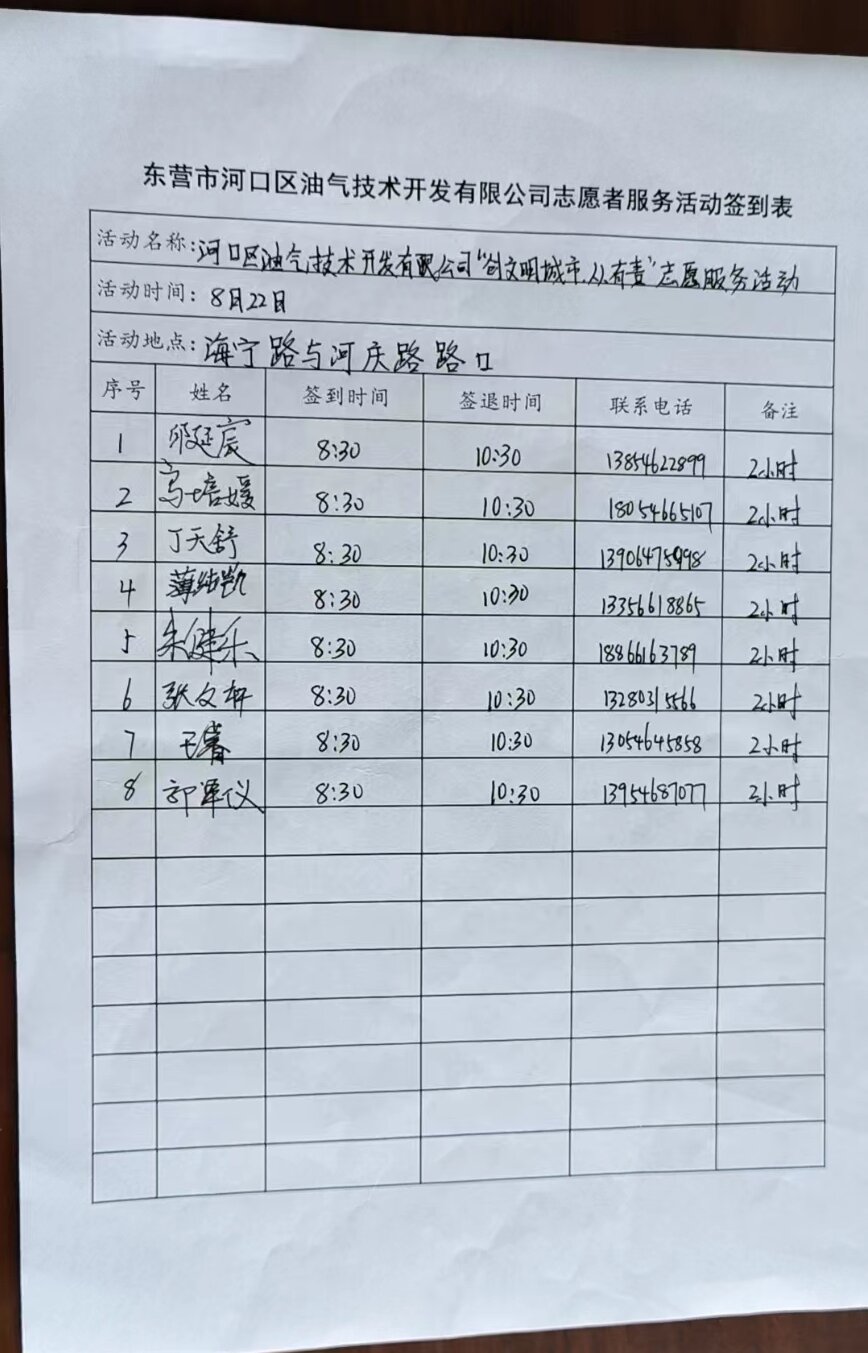 东营市河口区油气技术开发有限公司志愿者服务活动签到表
活动名称:河口区油气技术开发有限公司“创文明城市、人人有责”志愿服务活动
活动时间: 8月22日
活动地点: 海宁路与河庆路路口
序号 姓名 签到时间 签退时间 联系电话 备注
1 8:30 10:30 13854622899 2小时
2 高培媛 8:30 10:30 18054665107 2小时
3 丁天舒 8:30 10:30 13906475998 2小时
4 薄纯凯 8:30 10:30 13356618865 2小时
5 朱健乐 8:30 10:30 18866163789 2小时
6 张文轩 8:30 10:30 13280315566 2小时
7 王睿 8:30 10:30 13054645858 2小时
8 郭军仪 8:30 10:30 13954687077 2小时